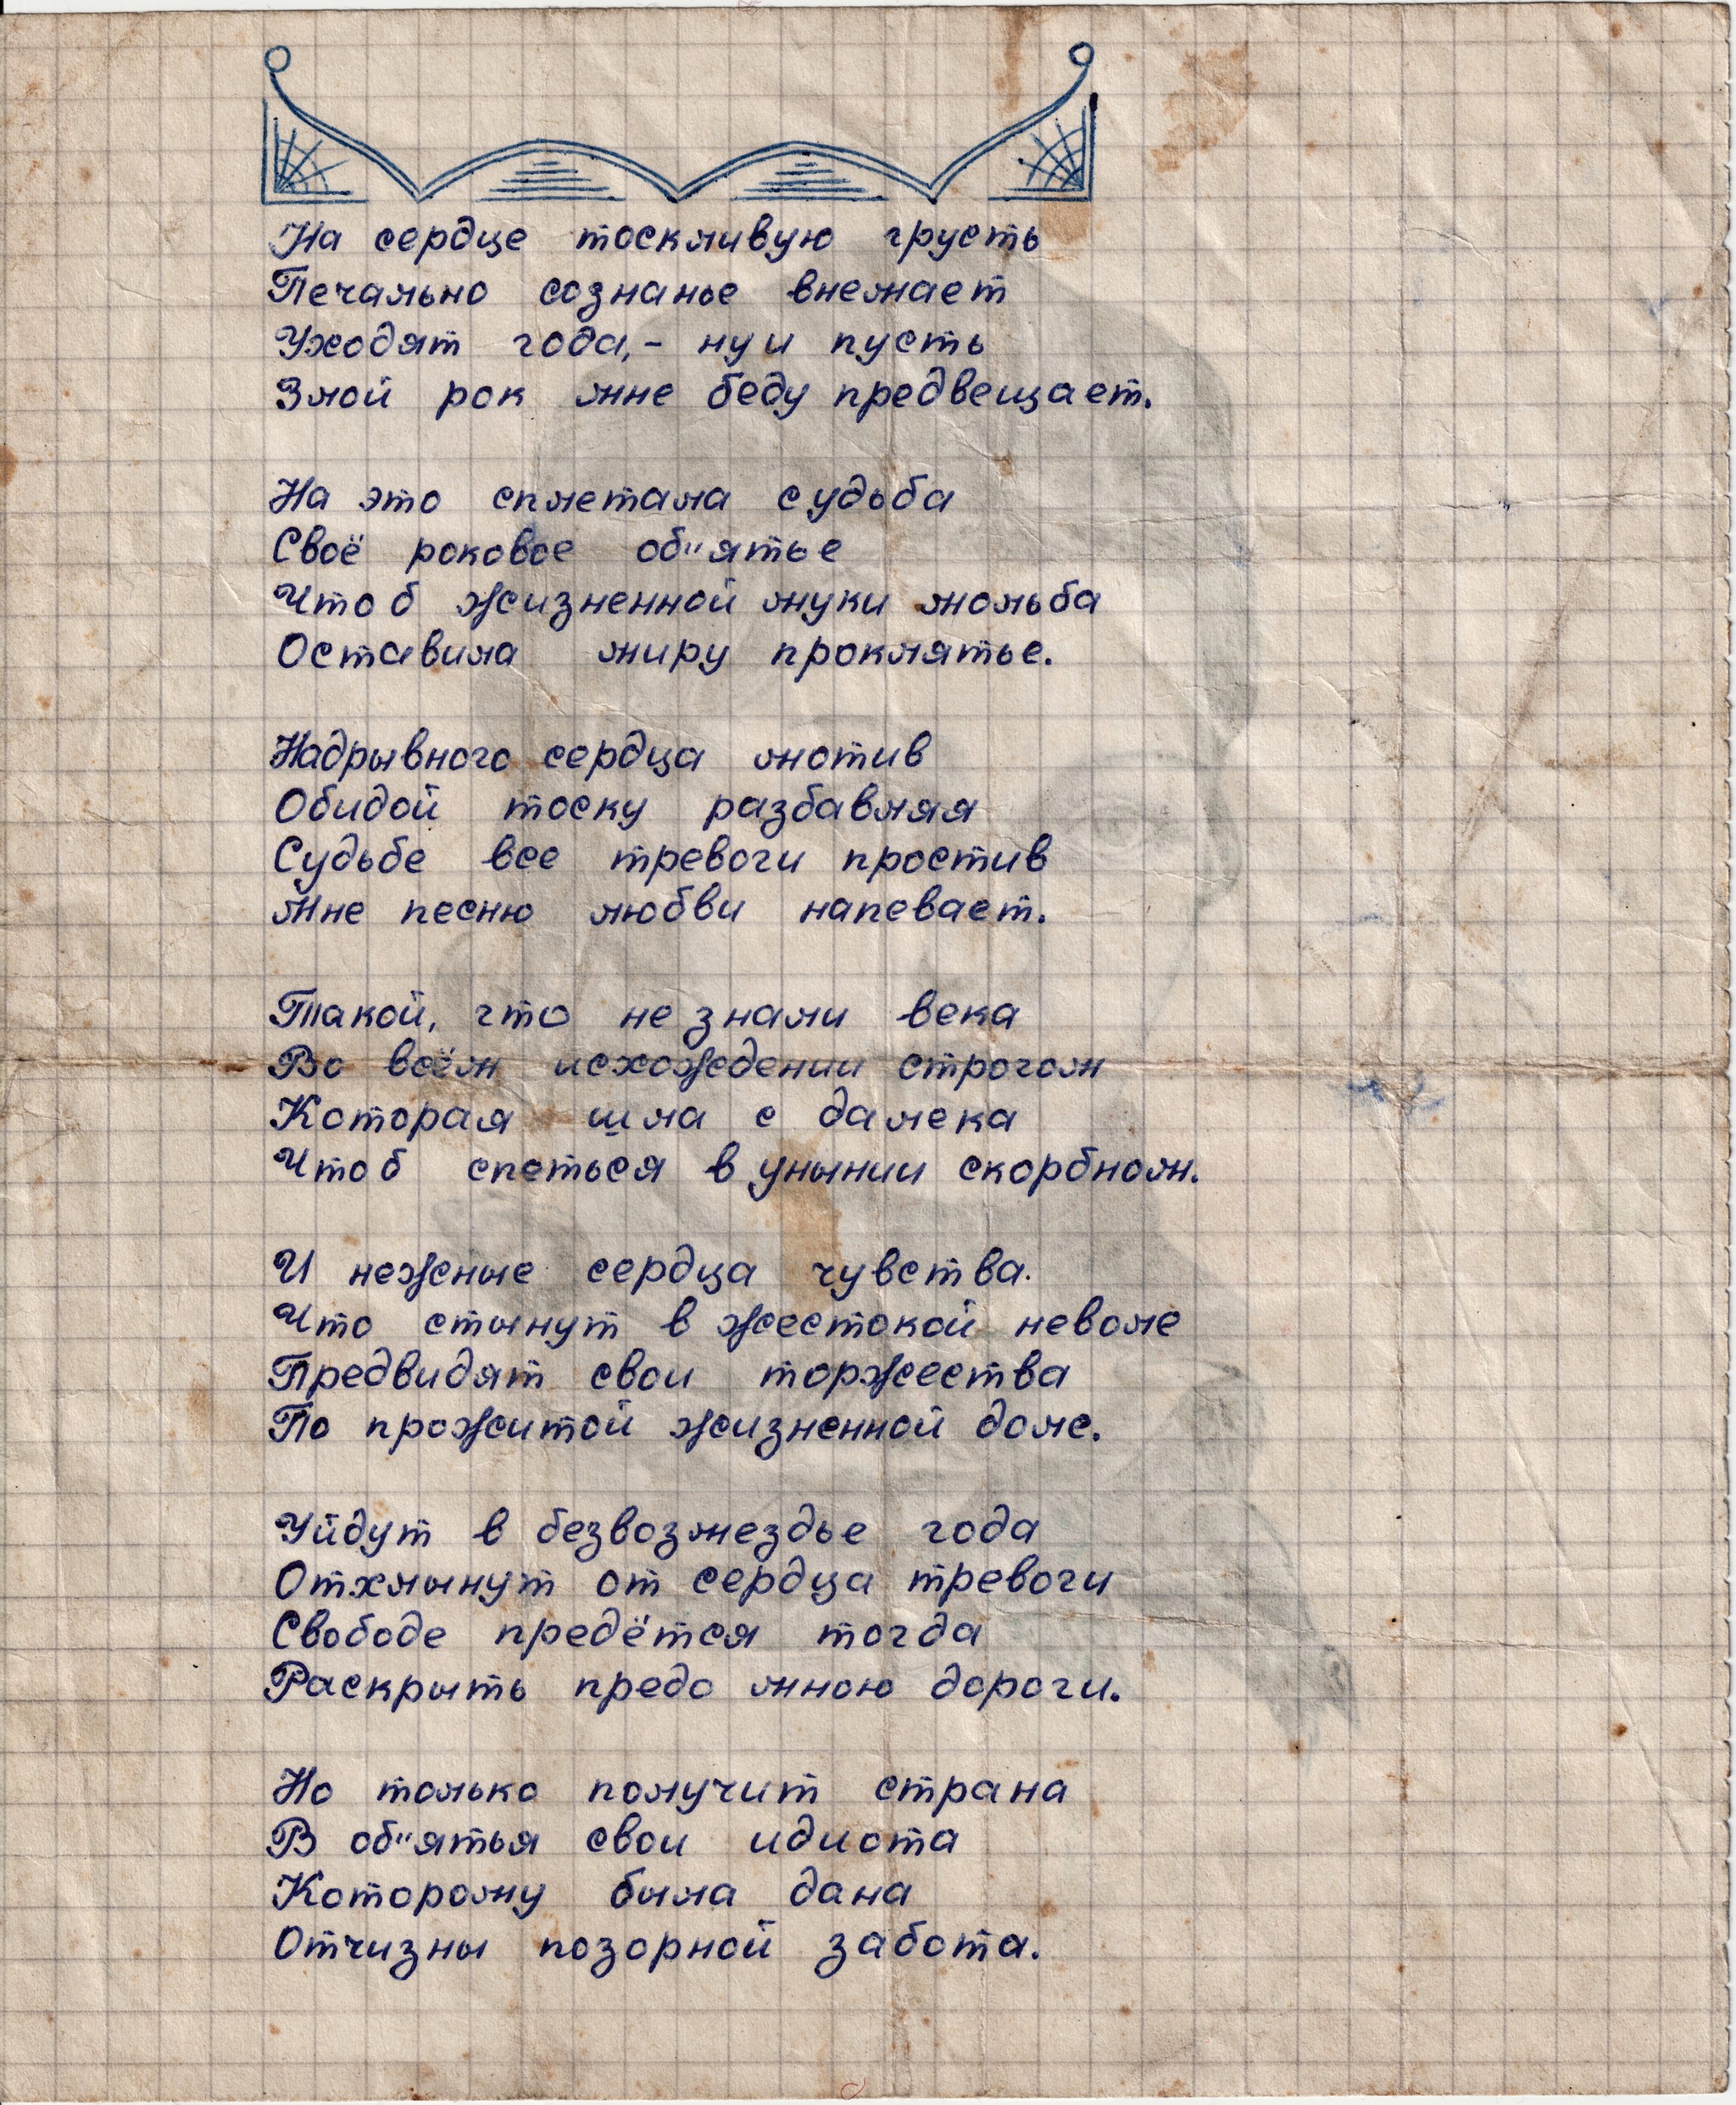 На сердце тоскливую грусть
Печально сознанье внемает
Уходят года,- ну и пусть
Злой рок мне беду предвещает.
На это сплетала судьба
Своё роковое об"ятье
Чтоб жизненной муки мольба
Оставила миру проклятье.
Надрывного сердца мотив
Обидой тоску разбавляя
Судьбе все тревоги простив
Мне песню любви напевает.
Такой, что не знали века
Во всём исхождении строгом
Которая шла с далека
Чтоб спеться в унынии скорбном.
И нежные сердца чувства.
Что стынут в жестокой неволе
Предвидят свои торжества
По прожитой жизненной доле.
Уйдут в безвозмездье года
Отхлынут от сердца тревоги
Свободе предётся тогда
Раскрыть предо мною дороги.
Но только получит страна
В об"ятья свои идиота
Которому была дана
Отчизны позорной забота.